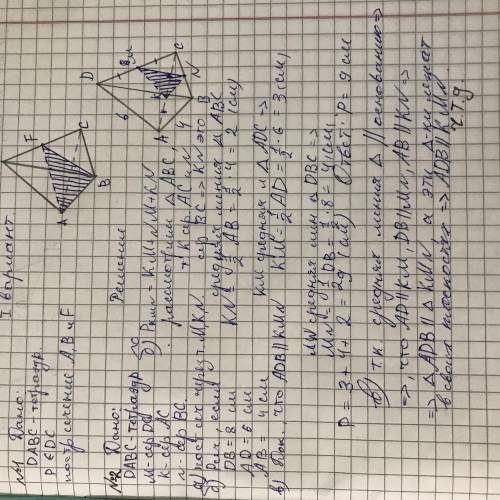 I вариант
№1 Дано:
DABC - тетраэдр.
P∈DC
построение A, B и F
F
A
B
C
№2 Дано:
DABC - тетраэдр
M - сер DC
K - сер. AC
N - сер BC.
а) постр сеч через т. M, K, N
б) Pсеч, если
DB = 8 см
AD = 6 см
AB = 4 см
в) Док., что ADB || KMN
D
6
8
M
K
A
4
N
C
B
Решение
б) Pкмн = KM + NM + KN
рассмотрим △ABC,
т. K сер. AC и N
сер BC => KN это
средняя линия △ABC
KN = 1/2 AB = 1/2 · 4 = 2 (см)
KM средняя л △ADC =>
KM = 1/2 AD = 1/2 · 6 = 3 (см)
MN средняя лин △DBC =>
MN = 1/2 DB = 1/2 · 8 = 4 (см)
P = 3 + 4 + 2 = 9 (см) Ответ: P = 9 см
в) т.к средняя линия △ || основанию =>
=>, что AD || KM, DB || MN, AB || KN =>
=> △ADB || △KMN, а эти △-ки лежат
в своих плоскостях => ADB || KMN
ч.т.д.